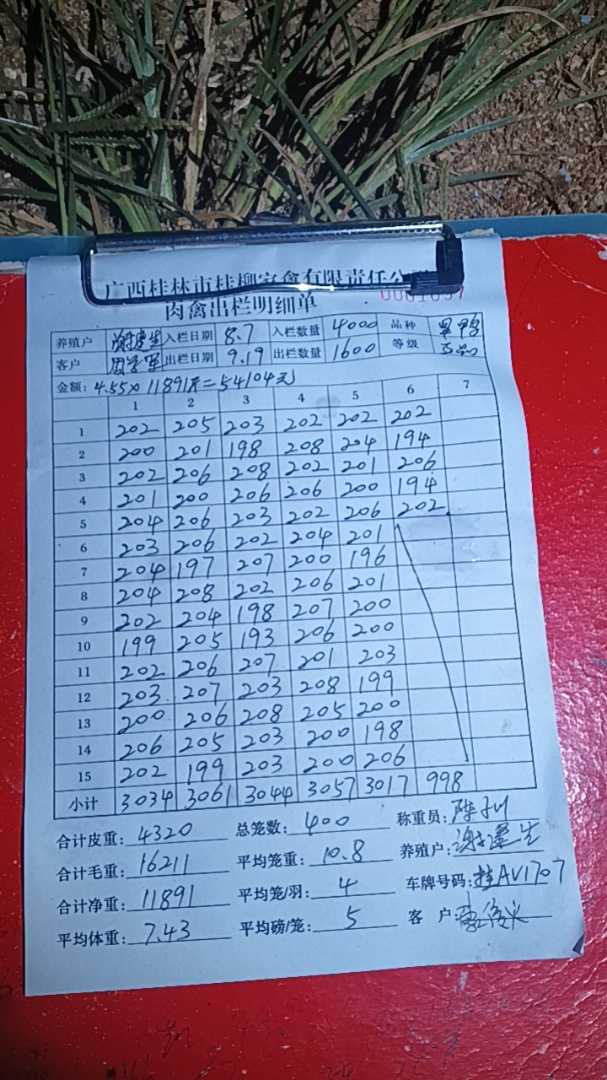 广西桂林市桂柳家禽有限责任公司
肉禽出栏明细单
养殖户 入栏日期 8.7 入栏数量 4000 品种
客户 出栏日期 9.19 出栏数量 1600 等级
金额: 4.55×11891斤=54104元
1 2 3 4 5 6 7
1 202 205 203 202 202 202
2 200 201 198 208 204 194
3 202 206 208 202 201 206
4 201 200 206 206 200 194
5 204 206 203 202 206 202
6 203 206 202 204 201
7 204 197 207 200 196
8 204 208 202 206 201
9 202 204 198 207 200
10 199 205 193 206 200
11 202 206 207 201 203
12 203 207 203 208 199
13 200 206 208 205 200
14 206 205 203 200 198
15 202 199 203 200 206
小计 3034 3061 3044 3057 3017 998
合计皮重: 4320 总笼数: 400 称重员:
合计毛重: 16211 平均笼重: 10.8 养殖户:
合计净重: 11891 平均笼/羽: 4 车牌号码: 桂AV1707
平均体重: 7.43 平均磅/笼: 5 客户